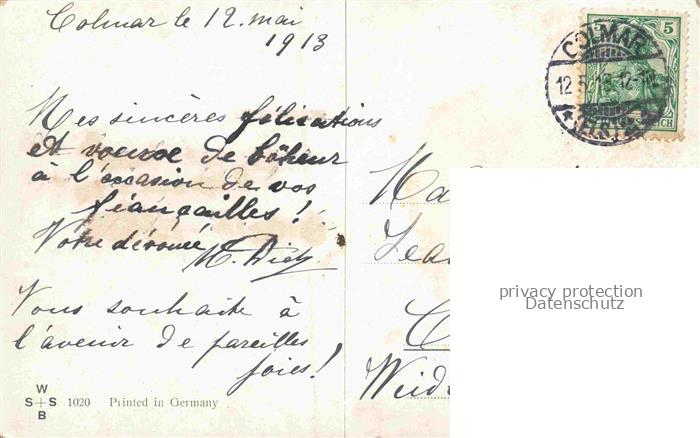 Colmar le 12. mai
1913
Mes sincères félications
et voeuxe de bôheur
à l'occasion de vos
fiançailles!
Votre dévouée
Vous souhaite à
l'avenir de pareilles
joies!
W
S+S
B
1020 Printed in Germany
COLMAR
5
12.5.13.12-1
privacy protection
Datenschutz